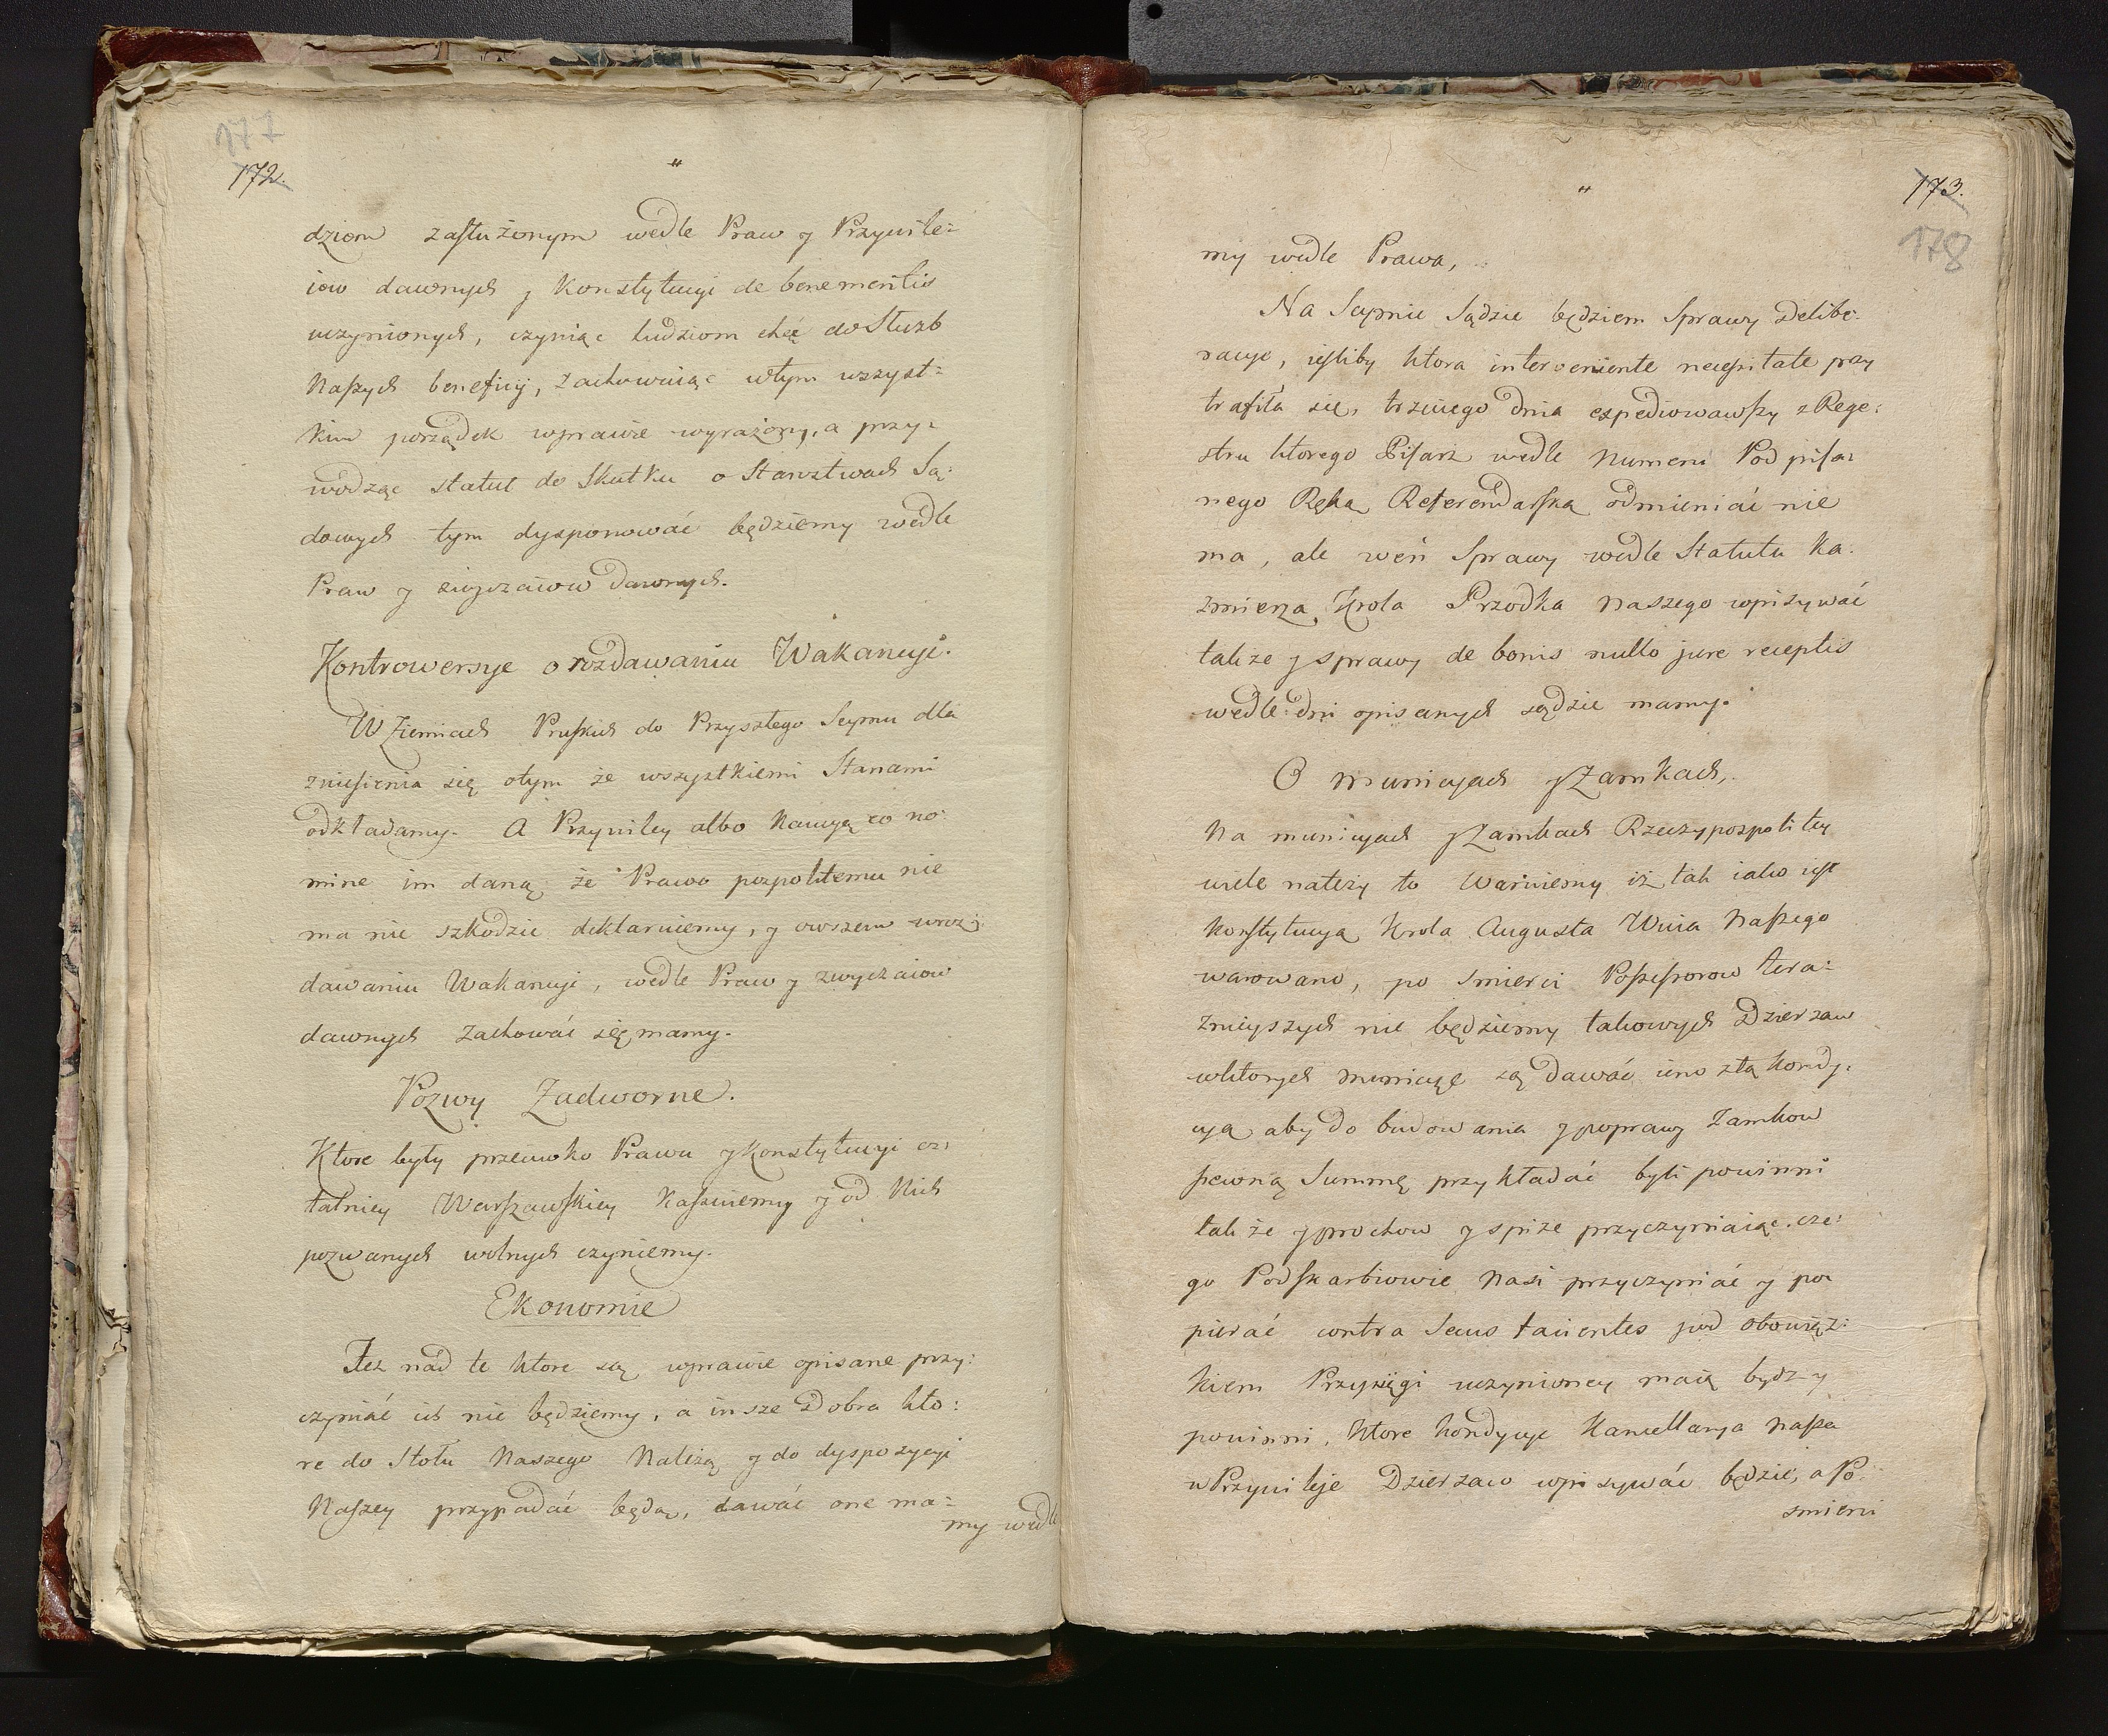 177
172.
"
dziom zasłużonym wedle Praw y Przywile=
iow dawnych y Konstytucyi de benemeritis
uczynionych, czyniąc ludziom chęć do Służb
Naszych beneficij, zachowuiąc wtym wszyst=
kim porządek wprawie wyrażony, a przy=
wodząc statut do Skutku o Starostwach Są=
dowych tym dysponować będziemy wedle
Praw y zwyczaiow dawnych.
Kontrowersye o rozdawaniu Wakancyi.
W Ziemiach Pruskich do Przyszłego Seymu dla
zniesienia się otym że wszystkiemi Stanami
odkładamy. A Przywiley albo Kaucyą eo no:
mine im daną, że Prawu pospolitemu nie
ma nie szkodzie deklaruiemy, y owszem wroz:
dawaniu Wakancyi, wedle Praw y zwyczaiow
dawnych zachować się mamy.
Pozwy Zadworne.
Ktore były przeciwko Prawu y Konstytucyi os=
tatniey Warszawskiey Kassuiemy y od Nich
pozwanych wolnych czyniemy.
Ekonomie
Też nád te ktore są wprawie opisane przy:
czyniać ich nie będziemy, a insze Dobra kto:
re do Stołu Naszego Należą y do dyspozycyi
Naszey przypadać będą, dawać one ma=
my wedle
173.
178
"
my wedle Prawa,
Na Seymie Sądzie będziem Sprawy Delibe=
racye, iesliby ktora interveniente necessitate przy
trafiła się, trzeciego dnia expediowawszy z Rege:
stru ktorego Pisarz wedle numeru Podpisa=
nego Ręką Referendarską odmieniać nie
ma, ale weń Sprawy wedle Statutu Ka:
zmierza Krola Przodka Naszego wpisywać
takze y sprawy de bonis nullo jure receptis
wedle dni opisanych sądzie mamy.
O municyach y Zamkach,
Na municyach y Zamkach Rzeczypospolitey
wiele należy to Waruiemy iż tak iako iest
Konstytucyą Krola Augusta Wuia Naszego
warowano, po smierci Possessorow tera=
znieyszych nie będziemy takowych Dzierzaw
wktorych municyę są dawać ieno ztą kondy=
cyą aby do budowania y poprawy Zamkow
pewną Summę przykładać byli powinni
także y prochow y spize przyczyniaiąc, cze:
go Podskarbiowie Nasi przyczyniać y po=
pierać contra secus facientes pod obowiąz:
kiem Przysięgi uczynioney maią bydz y
powinni, ktore kondycye Kancellarya Nasza
w Przywileje Dzierzaw wpisywać będzie, a Po
smierci